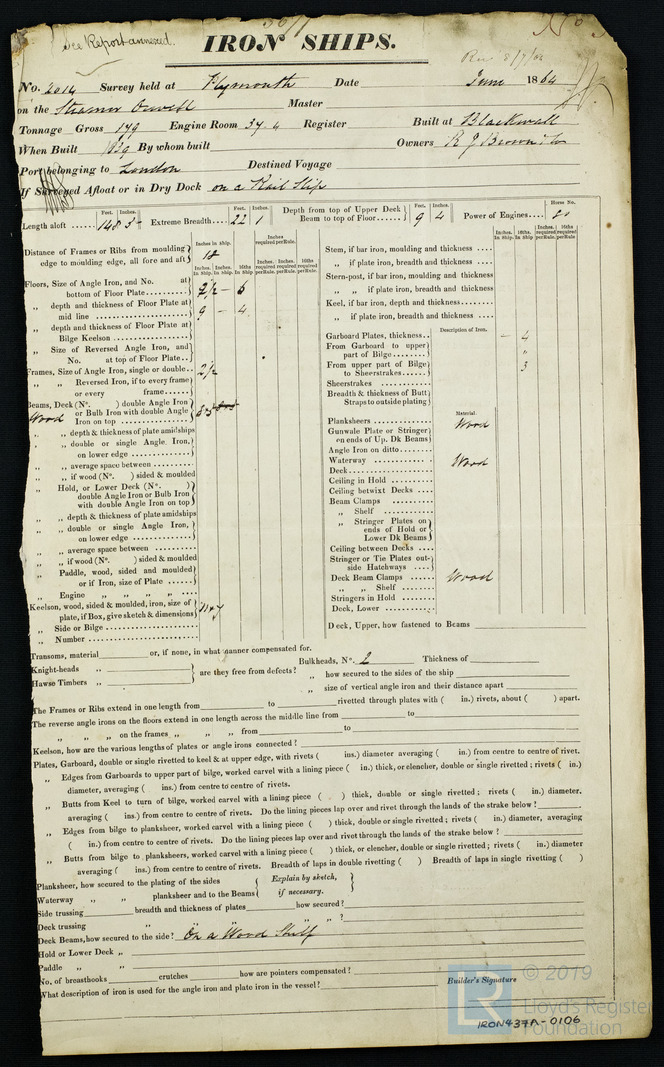 See Report annexed.
IRON SHIPS.
No. 2014 Survey held at Plymouth Date June 1864
on the Steamer Orwell Master
Tonnage Gross 179 Engine Room 37.4 Register Built at Blackwall
When Built By whom built Owners R J Brown & Co
Port belonging to London Destined Voyage
If Surveyed Afloat or in Dry Dock on a Rail Slip
Length aloft Feet. Inches. 148 3 Extreme Breadth Feet. Inches. 22 1 Depth from top of Upper Deck Beam to top of Floor Feet. Inches. 9 4 Power of Engines Horse No.
Distance of Frames or Ribs from moulding edge to moulding edge, all fore and aft Inches in Ship. 18 Inches required per Rule.
Inches. In Ship. 16ths In Ship. Inches required per Rule. 16ths required per Rule.
Floors, Size of Angle Iron, and No. at bottom of Floor Plate 2½ – 6
„ depth and thickness of Floor Plate at mid line 9 – 4
„ depth and thickness of Floor Plate at Bilge Keelson
„ Size of Reversed Angle Iron, and No. at top of Floor Plate
Frames, Size of Angle Iron, single or double 2½
„ „ Reversed Iron, if to every frame or every frame
Beams, Deck (No. ) double Angle Iron or Bulb Iron with double Angle Iron on top
Wood
„ „ depth & thickness of plate amidships
„ „ double or single Angle Iron, on lower edge
„ „ average space between
„ „ if wood (No. ) sided & moulded
„ Hold, or Lower Deck (No. ) double Angle Iron or Bulb Iron with double Angle Iron on top
„ „ depth & thickness of plate amidships
„ „ double or single Angle Iron, on lower edge
„ „ average space between
„ „ if wood (No. ) sided & moulded
„ Paddle, wood, sided and moulded or if Iron, size of Plate
„ Engine „ „ „ „
Keelson, wood, sided & moulded, iron, size of plate, if Box, give sketch & dimensions 11 x 7
„ Side or Bilge
„ Number
Inches. In Ship. 16ths In Ship. Inches required per Rule. 16ths required per Rule.
Stem, if bar iron, moulding and thickness
„ if plate iron, breadth and thickness
Stern-post, if bar iron, moulding and thickness
„ „ if plate iron, breadth and thickness
Keel, if bar iron, depth and thickness
„ if plate iron, breadth and thickness
Description of Iron.
Garboard Plates, thickness – 4
From Garboard to upper part of Bilge „
From upper part of Bilge to Sheerstrakes 3
Sheerstrakes
Breadth & thickness of Butt Straps to outside plating
Material.
Planksheers Wood
Gunwale Plate or Stringer on ends of Up. Dk Beams
Angle Iron on ditto
Waterway Wood
Deck
Ceiling in Hold
Ceiling betwixt Decks
Beam Clamps
„ Shelf
„ Stringer Plates on ends of Hold or Lower Dk Beams
Ceiling between Decks
Stringer or Tie Plates outside Hatchways
Deck Beam Clamps Wood
„ „ Shelf
Stringers in Hold
Deck, Lower
Deck, Upper, how fastened to Beams
Transoms, material or, if none, in what manner compensated for.
Knight-heads „
Hawse Timbers „
are they free from defects?
Bulkheads, No. 2 Thickness of
„ how secured to the sides of the ship
„ size of vertical angle iron and their distance apart
The Frames or Ribs extend in one length from to rivetted through plates with ( in.) rivets, about ( ) apart.
The reverse angle irons on the floors extend in one length across the middle line from to
„ „ „ on the frames „ „ „ from to
Keelson, how are the various lengths of plates or angle irons connected?
Plates, Garboard, double or single rivetted to keel & at upper edge, with rivets ( ins.) diameter averaging ( in.) from centre to centre of rivet.
„ Edges from Garboards to upper part of bilge, worked carvel with a lining piece ( in.) thick, or clencher, double or single rivetted; rivets ( in.) diameter, averaging ( ins.) from centre to centre of rivets.
„ Butts from Keel to turn of bilge, worked carvel with a lining piece ( ) thick, double or single rivetted; rivets ( in.) diameter.
averaging ( ins.) from centre to centre of rivets. Do the lining pieces lap over and rivet through the lands of the strake below?
„ Edges from bilge to planksheer, worked carvel with a lining piece ( ) thick, double or single rivetted; rivets ( in.) diameter, averaging
( in.) from centre to centre of rivets. Do the lining pieces lap over and rivet through the lands of the strake below?
„ Butts from bilge to planksheers, worked carvel with a lining piece ( ) thick, or clencher, double or single rivetted; rivets ( in.) diameter
averaging ( ins.) from centre to centre of rivets. Breadth of laps in double rivetting ( ) Breadth of laps in single rivetting ( )
Planksheer, how secured to the plating of the sides
Waterway „ „ planksheer and to the Beams
Explain by sketch, if necessary.
Side trussing breadth and thickness of plates how secured?
Deck trussing „ „ „ „ ?
Deck Beams, how secured to the side? On a Wood Shelf
Hold or Lower Deck „
Paddle „ „
No. of breasthooks crutches how are pointers compensated?
What description of iron is used for the angle iron and plate iron in the vessel?
Builder's Signature
LR
© 2019
Lloyd's Register
Foundation
IRON437A-0106